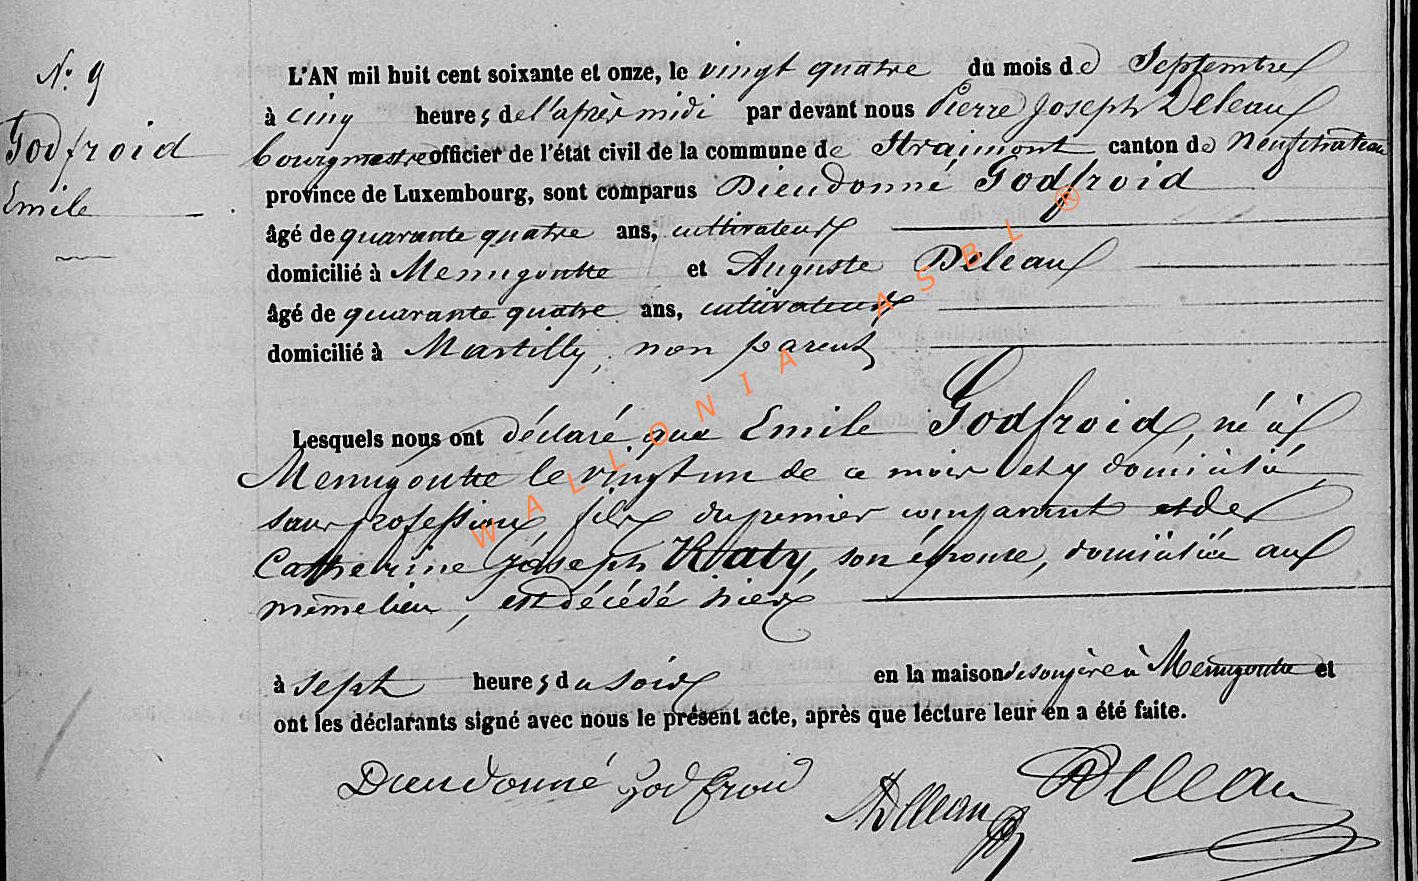 N° 9
Godfroid
Emile
L'AN mil huit cent soixante et onze, le vingt quatre du mois de Septembre
à cinq heures de l'après midi par devant nous Pierre Joseph Deleau
bourgmestre officier de l'état civil de la commune de Straimont canton de Neufchateau
province de Luxembourg, sont comparus Dieudonné Godfroid
âgé de quarante quatre ans, cultivateur
domicilié à Menugoutte et Auguste Deleau
âgé de quarante quatre ans, cultivateur
domicilié à Martilly, non parent
Lesquels nous ont déclaré que Emile Godfroid, né à
Menugoutte le vingt un de ce mois et y domicilié
sans profession, fils du premier comparant et de
Catherine Joseph Katy, son épouse, domiciliée au
même lieu, est décédé hier
à sept heures du soir en la maison de son père à Menugoutte et
ont les déclarants signé avec nous le présent acte, après que lecture leur en a été faite.
Dieudonné Godfroid ADeleau Deleau
WALLONIA ASBL ®